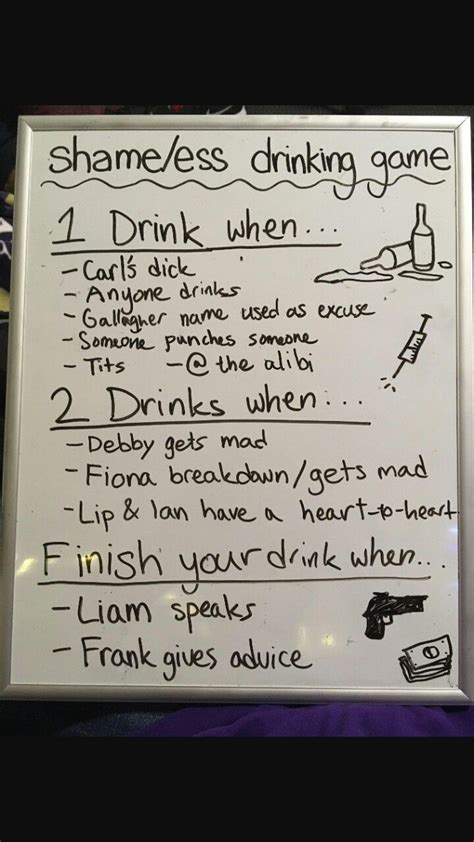 shameless drinking game
1 Drink when...
- Carl's dick
- Anyone drinks
- Gallagher name used as excuse
- Someone punches someone
- Tits - @ the alibi
2 Drinks when...
- Debby gets mad
- Fiona breakdown/gets mad
- Lip & Ian have a heart-to-heart
Finish your drink when...
- Liam speaks
- Frank gives advice